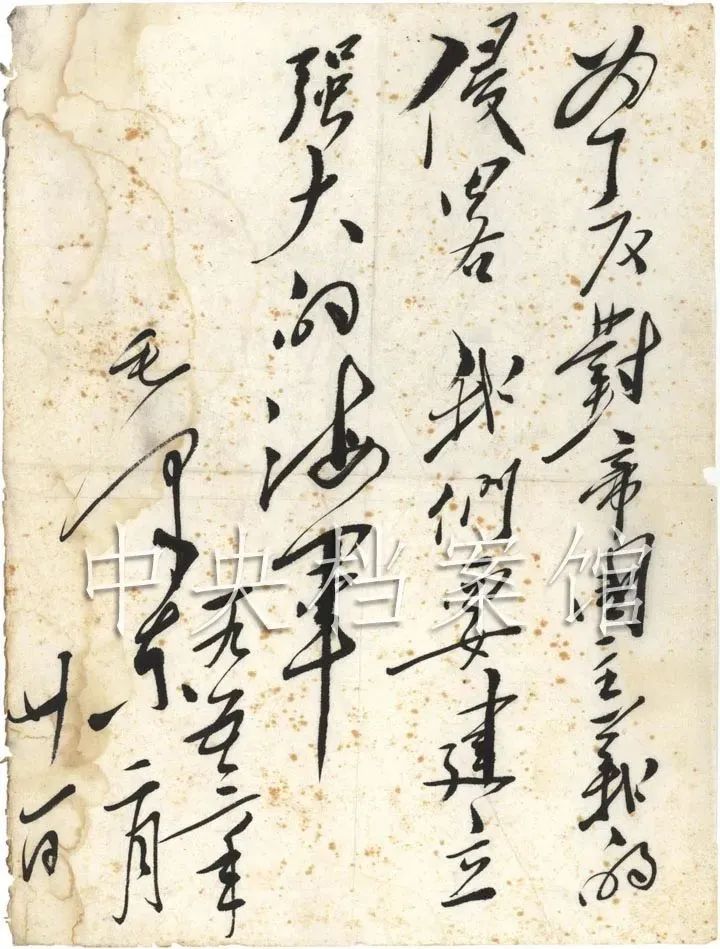 为了反對帝國主義的
侵畧我們要建立
强大的海軍
毛泽东
一九五三年
二月
廿一日
中央档案馆